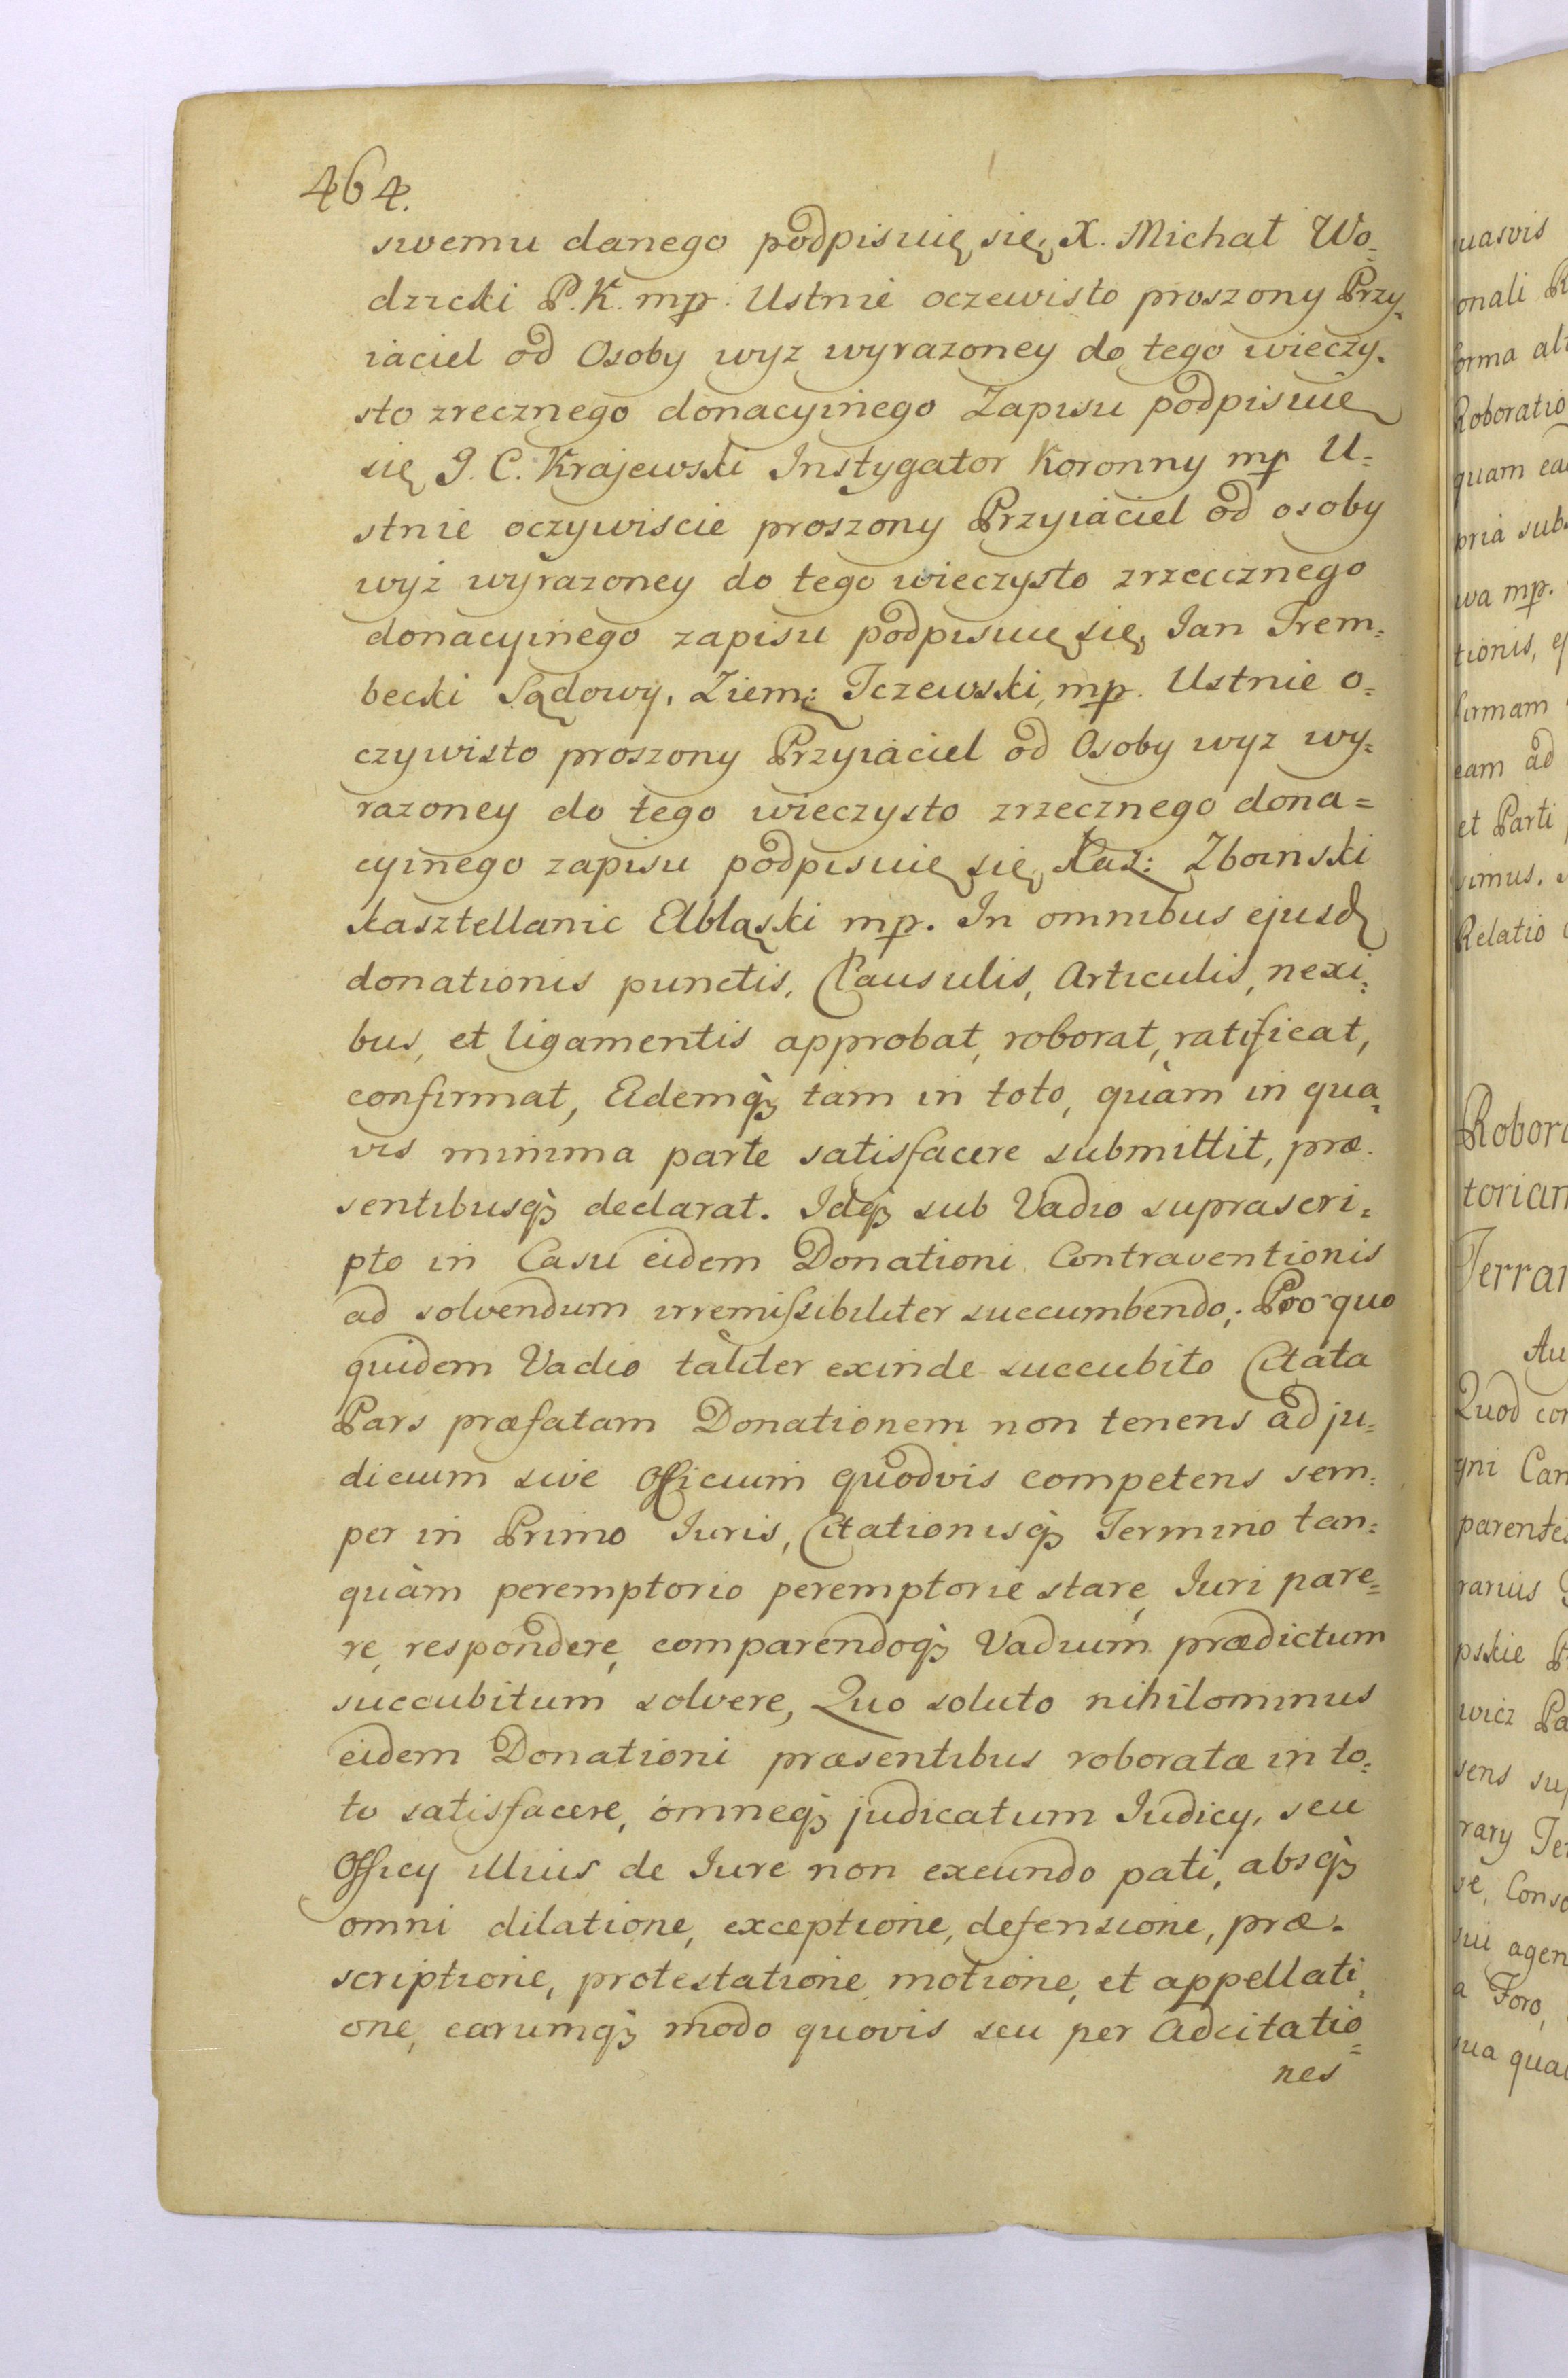 464.
swemu danego podpisuię się, X. Michał Wo=
dzicki P. K. mp. Ustnie oczewisto proszony Przy=
iaciel od Osoby wyz wyrazoney do tego wieczy=
sto zrecznego donacyinego Zapisu podpisuię
się J. C. Krajewski Instygator Koronny mp U=
stnie oczywiscie proszony Przyiaciel od osoby
wyż wyrazoney do tego wieczysto zrzecznego
donacyinego zapisu podpisuię się, Ian Trem=
becki Sądowy, Ziem: Tczewski, mp. Ustnie o=
czywisto proszony Przyiaciel od Osoby wyz wy=
razoney do tego wieczysto zrzecznego dona=
cyinego zapisu podpisuię się, Kaz: Zboinski
kasztellanic Elbląski mp. In omnibus ejusd
donationis punctis, Clausulis, Articulis, nexi=
bus, et ligamentis approbat, roborat, ratificat,
confirmat, Eidemq3 tam in toto, quàm in qua=
vis minima parte satisfacere submittit, præ=
sentibusq3 declarat. Idq3 sub Vadio suprascri=
pto in Casu eidem Donationi Contraventionis
ad solvendum irremissibiliter succumbendo; Pro quo
quidem Vadio tàliter exinde succubito Citata
Pars præfatam Donationem non tenens ad ju=
dicium sive Officium quodvis competens sem=
per in Primo Iuris, Citationisq3 Termino tan=
quàm peremptorio peremptorie stare, Iuri pare=
re, respondere, comparendoq3 Vadium prædictum
succubitum solvere, Quo soluto nihilominus
eidem Donationi præsentibus roboratæ in to=
to satisfacere, omneq3 judicatum Iudicy, seu
Officy illius de Iure non exeundo pati, absq3
omni dilatione, exceptione, defensione, præ=
scriptione, protestatione, motione, et appellati=
one, earumq3 modo quovis seu per Adcitatio=
nes
uasvis
onali
forma
Roboratio
quam
pria
wa mp.
tionis,
firmam
eam ad
et Parti
simus,
Relatio
Robora
torian
Terrar
Quod
gni
parente
ranius
pskie
wicz
sens
rary
agen
a Foro,